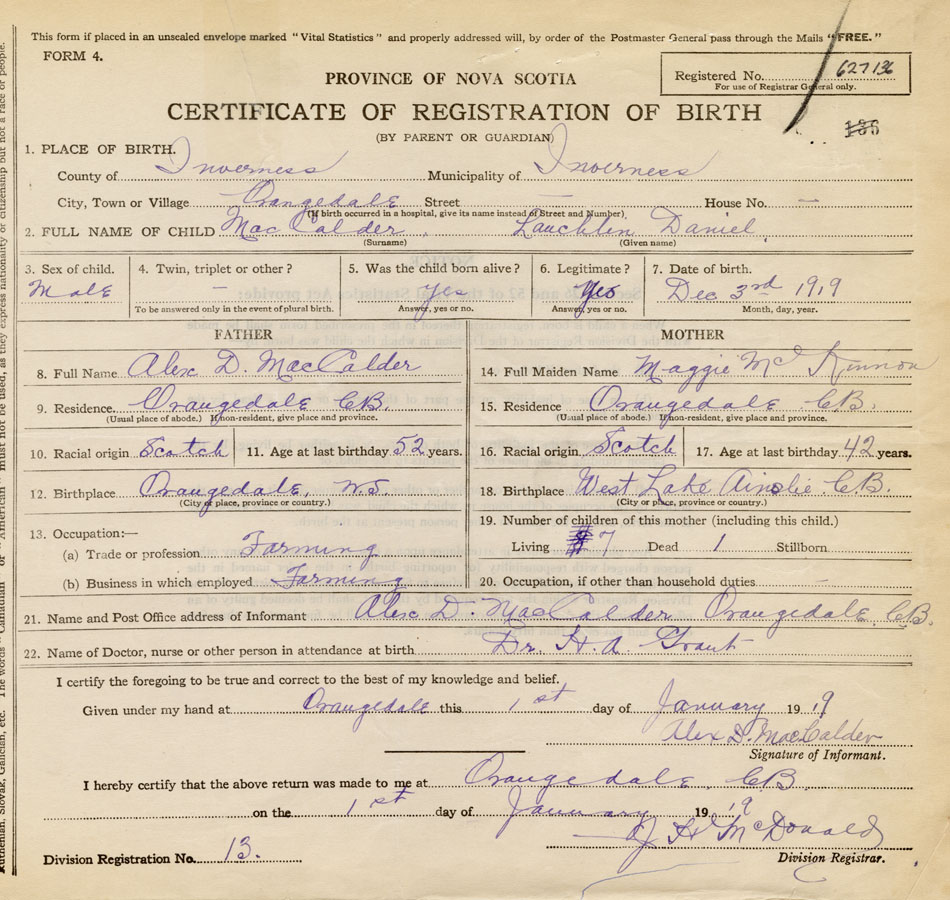 This form if placed in an unsealed envelope marked "Vital Statistics" and properly addressed will, by order of the Postmaster General pass through the Mails "FREE."
FORM 4.
PROVINCE OF NOVA SCOTIA
Registered No. 627136
For use of Registrar General only.
CERTIFICATE OF REGISTRATION OF BIRTH
136
(BY PARENT OR GUARDIAN)
1. PLACE OF BIRTH.
County of Inverness Municipality of Inverness
City, Town or Village Orangedale Street — House No. —
(If birth occurred in a hospital, give its name instead of Street and Number)
2. FULL NAME OF CHILD MacCalder, Lauchlin Daniel,
(Surname) (Given name)
3. Sex of child. 4. Twin, triplet or other? 5. Was the child born alive? 6. Legitimate? 7. Date of birth.
Male — Yes Yes Dec 3rd 1919
To be answered only in the event of plural birth. Answer, yes or no. Answer, yes or no. Month, day, year.
FATHER MOTHER
8. Full Name Alex D. MacCalder
14. Full Maiden Name Maggie Mc Kinnon
9. Residence Orangedale C.B.
(Usual place of abode.) If non-resident, give place and province.
15. Residence Orangedale C.B.
(Usual place of abode.) If non-resident, give place and province.
10. Racial origin Scotch 11. Age at last birthday 52 years.
16. Racial origin Scotch 17. Age at last birthday 42 years.
12. Birthplace Orangedale, N.S.
(City or place, province or country.)
18. Birthplace West Lake Ainslie C.B.
(City or place, province or country.)
13. Occupation:—
(a) Trade or profession Farming
(b) Business in which employed Farming
19. Number of children of this mother (including this child.)
Living 7 Dead 1 Stillborn
20. Occupation, if other than household duties —
21. Name and Post Office address of Informant Alex D. MacCalder Orangedale, C.B.
22. Name of Doctor, nurse or other person in attendance at birth Dr. H. A. Grant
I certify the foregoing to be true and correct to the best of my knowledge and belief.
Given under my hand at Orangedale this 1st day of January 1919
Alex D. MacCalder
Signature of Informant.
I hereby certify that the above return was made to me at Orangedale C.B.
on the 1st day of January 1919
J H McDonald
Division Registration No. 13. Division Registrar.